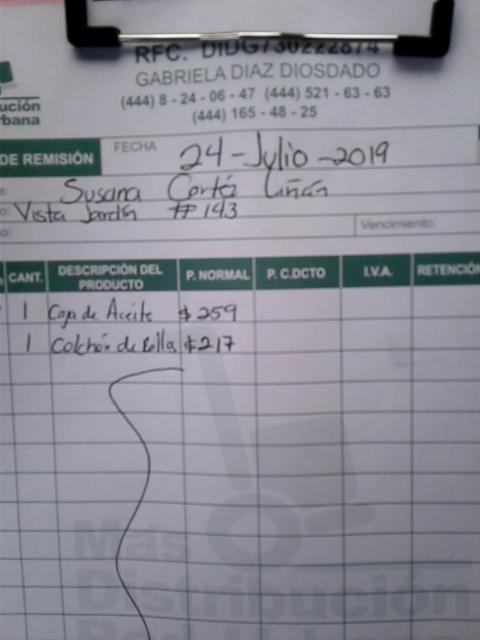 RFC. DIDG730222874
GABRIELA DIAZ DIOSDADO
(444) 8 - 24 - 06 - 47 (444) 521 - 63 - 63
(444) 165 - 48 - 25
ución
bana
DE REMISIÓN
FECHA 24-Julio-2019
Susana Cortéz Liñán
Vista Jardín # 143
Vencimiento:
CANT. DESCRIPCIÓN DEL PRODUCTO P. NORMAL P. C.DCTO I.V.A. RETENCIÓN
1 Caja de Aceite $259
1 Colchón de Rollos $217
Más
Distribución